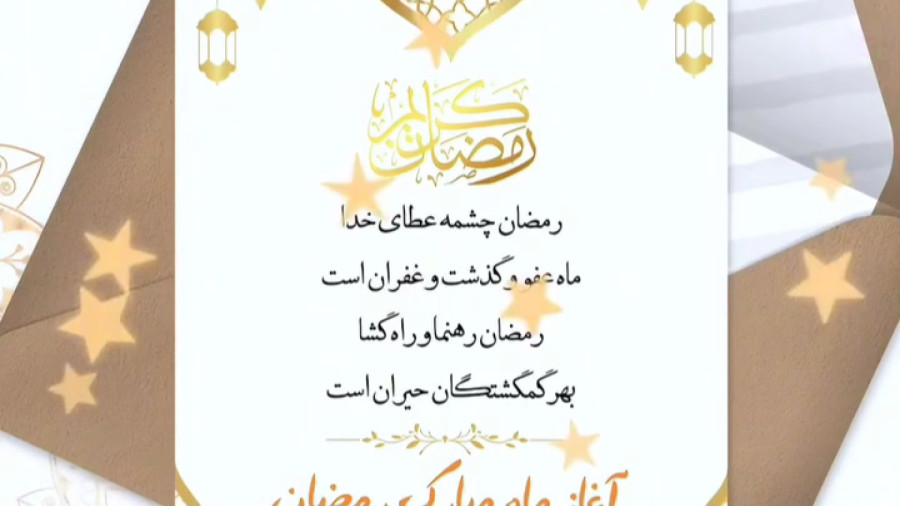 رمضان كريم
رمضان چشمه عطای خدا
ماه عفو و گذشت و غفران است
رمضان رهنما و راه گشا
بهر گمگشتگان حیران است
آغاز ماه مبارک رمضان